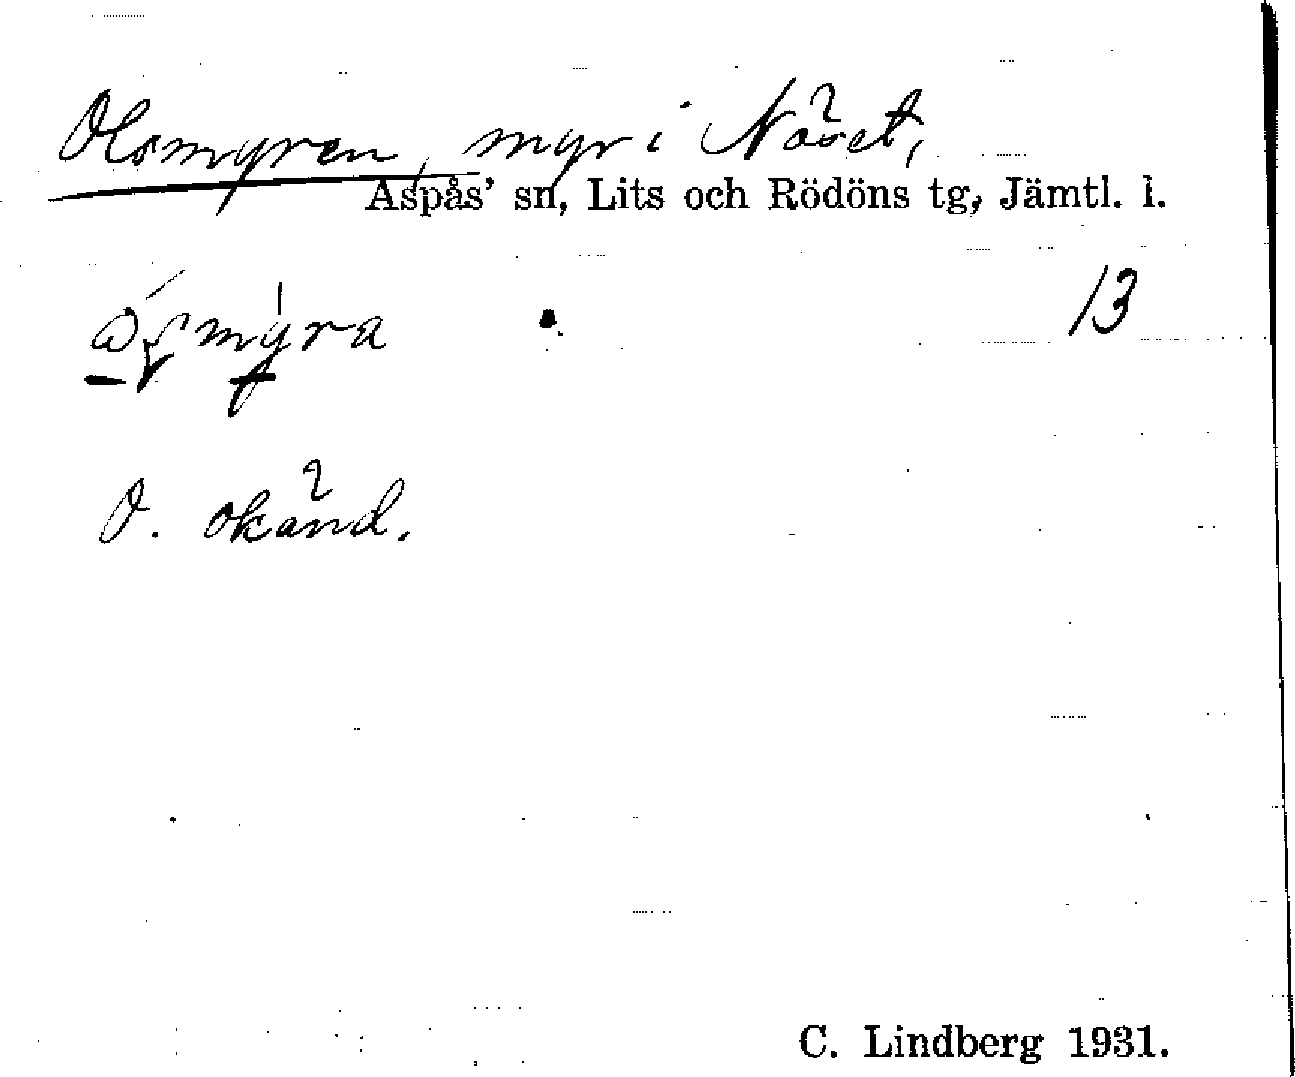 Olsmyren, myr i Näset,
Aspås' sn, Lits och Rödöns tg, Jämtl. l.
13
O. okänd.
C. Lindberg 1931.